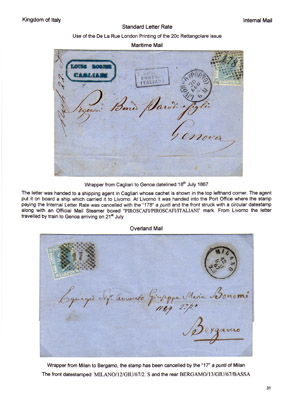 Kingdom of Italy
Internal Mail
Standard Letter Rate
Use of the De La Rue London Printing of the 20c Rettangolare issue
Maritime Mail
LOUIS ROGIER
CAGLIARI
PIROSCAFI
POSTALI
ITALIANI
Genova
Wrapper from Cagliari to Genoa datelined 18th July 1867
The letter was handed to a shipping agent in Cagliari whose cachet is shown in the top lefthand corner. The agent
put it on board a ship which carried it to Livorno. At Livorno it was handed into the Port Office where the stamp
paying the Internal Letter Rate was cancelled with the "178" a punti and the front struck with a circular datestamp
along with an Official Mail Steamer boxed "PIROSCAFI/PIROSCAFI/ITALIANI" mark. From Livorno the letter
travelled by train to Genoa arriving on 21st July
Overland Mail
MILANO
17
Giuseppe Maria Bonomi
Bergamo
Wrapper from Milan to Bergamo, the stamp has been cancelled by the "17" a punti of Milan
The front datestamped MILANO/12/GIU/67/2. S and the rear BERGAMO/13/GIU/67/BASSA